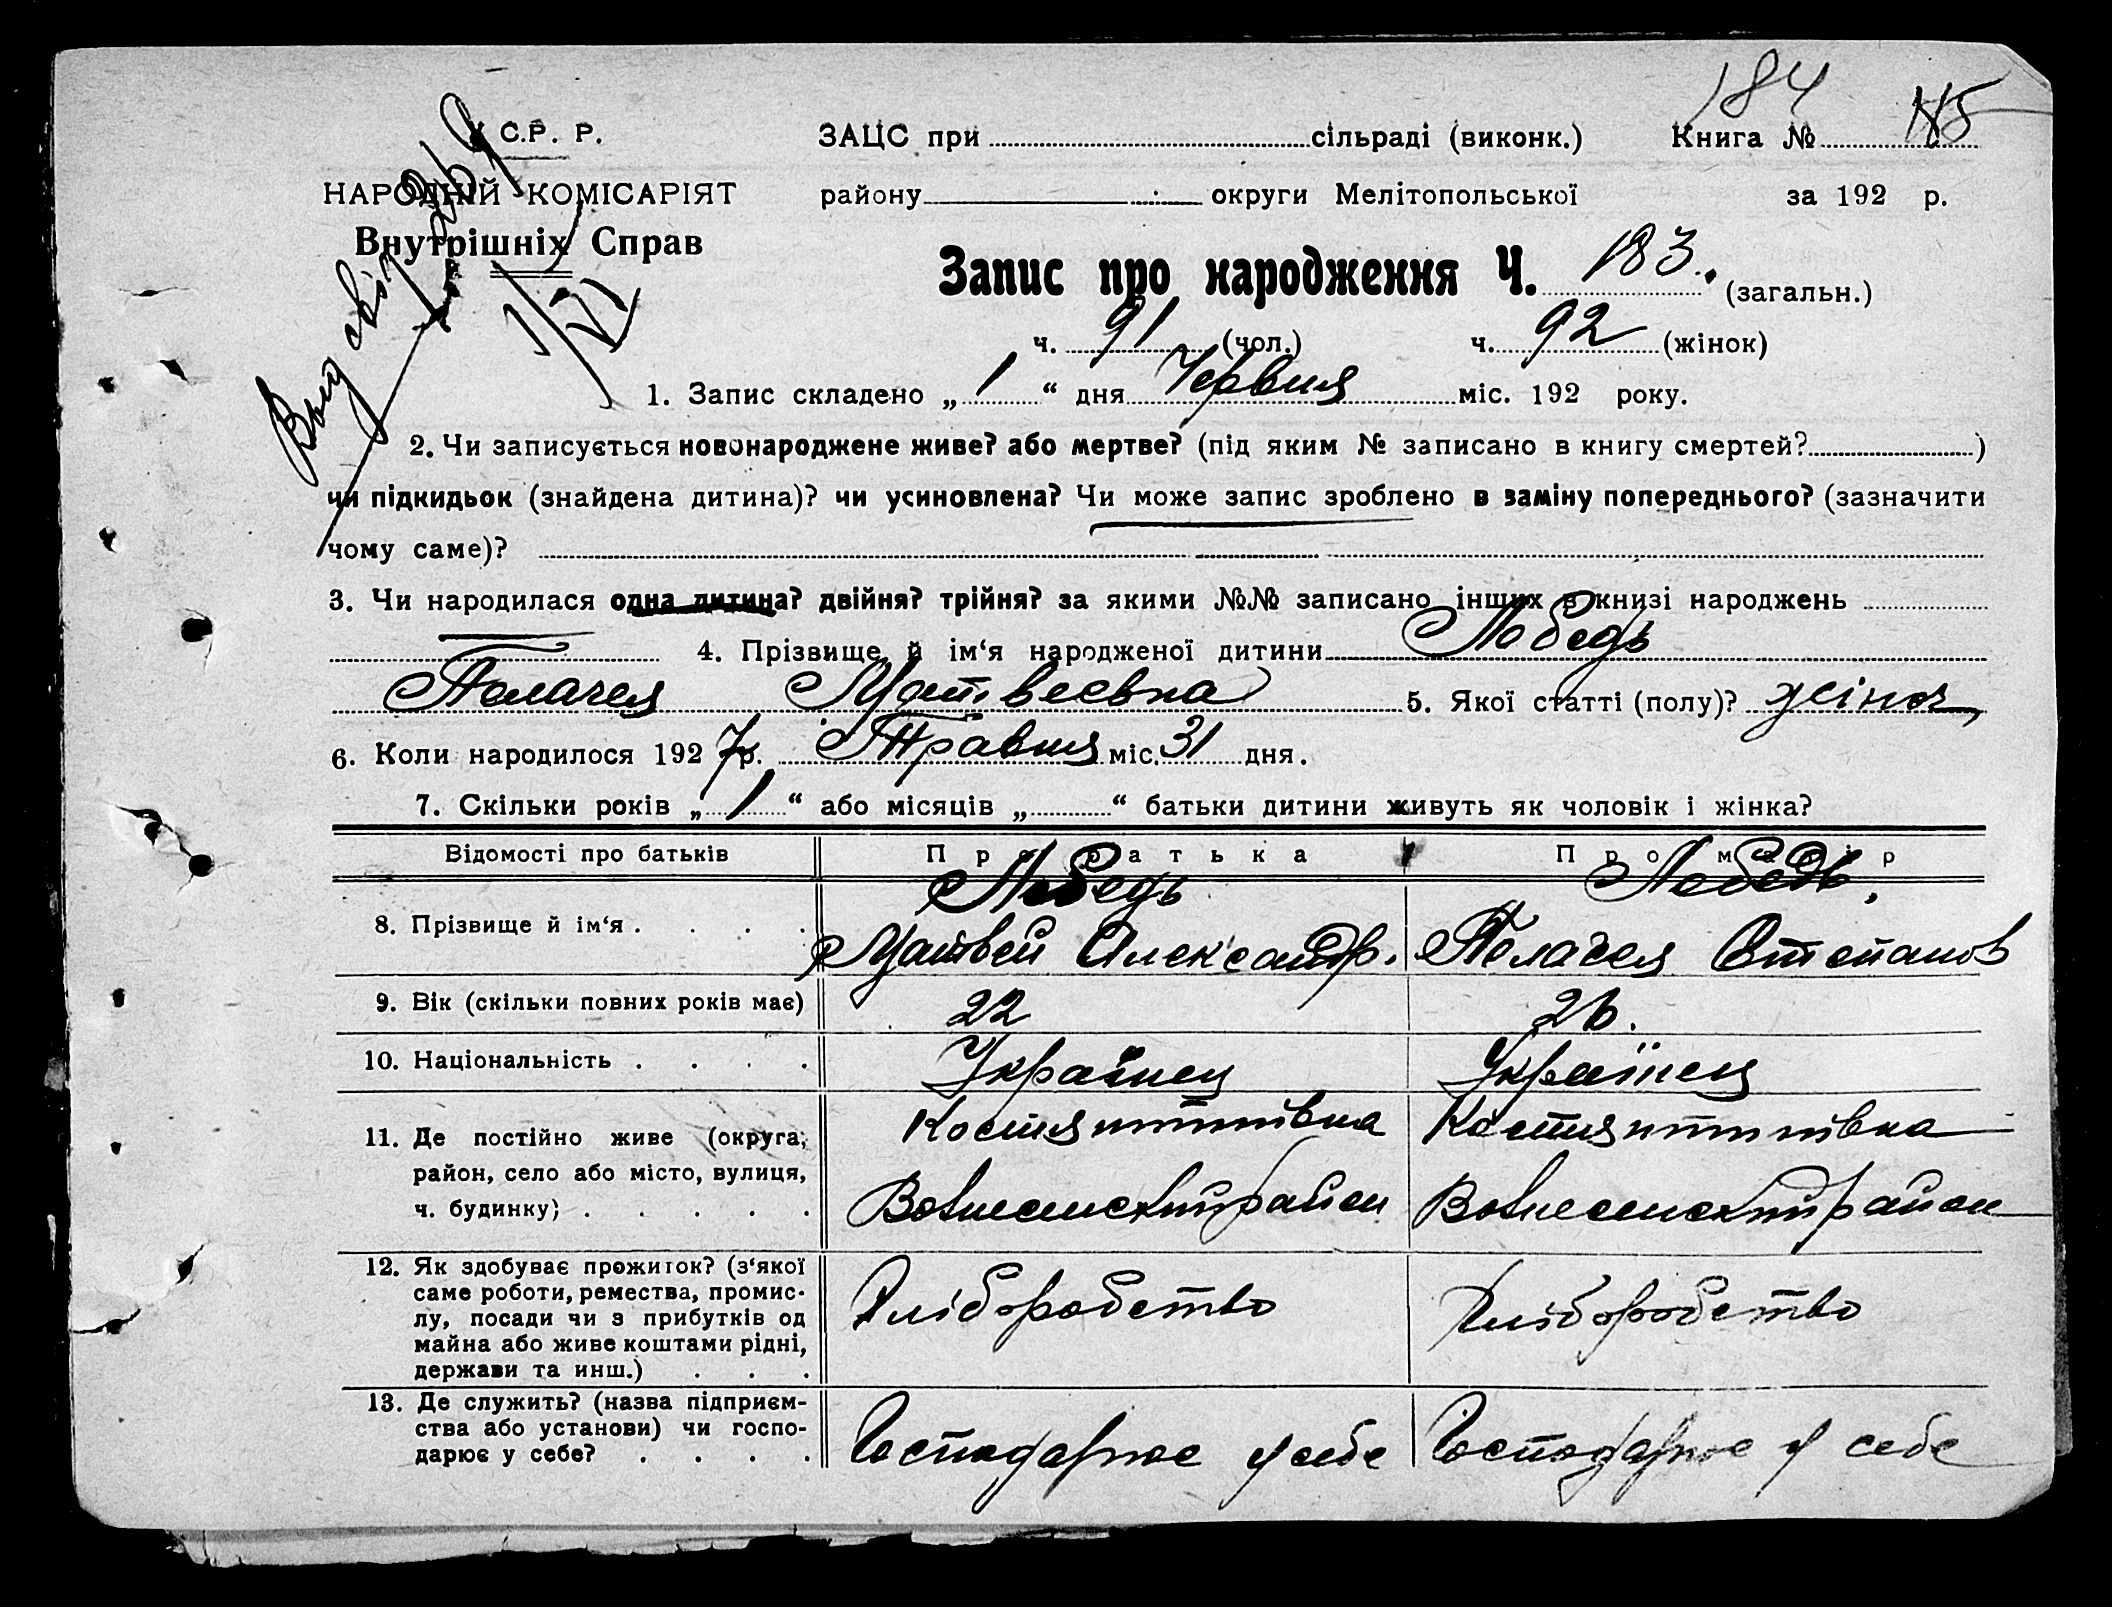 184
У С.Р. Р.
ЗАЦС при сільраді (виконк.) Книга № 115
НАРОДНІЙ КОМІСАРІЯТ
району округи Мелітопольської за 192 р.
Внутрішніх Справ
Запис про народження Ч. 183. (загальн.)
ч. 91 (чол.) ч. 92 (жінок)
1. Запис складено „ 1 “ дня Червня міс. 192 року.
2. Чи записується новонароджене живе? або мертве? (під яким № записано в книгу смертей? )
чи підкидьок (знайдена дитина)? чи усиновлена? Чи може запис зроблено в заміну попереднього? (зазначити
чому саме)?
3. Чи народилася одна дитина? двійня? трійня? за якими №№ записано інших в книзі народжень
4. Прізвище й ім‘я народженої дитини Лобедь
Палагея Матвеевна 5. Якої статті (полу)? жіноч
6. Коли народилося 1927 р. Травня міс. 31 дня.
7. Скільки років „ 1 “ або місяців „ “ батьки дитини живуть як чоловік і жінка?
Відомості про батьків Про батька Про матір
Лебедь Лебедь,
8. Прізвище й ім‘я . . . . Матвей Александр. Палагея Степанов
9. Вік (скільки повних років має) 22 26.
10. Національність . . . . Українец Українец
11. Де постійно живе (округа, Костянтинівка Костянтинівка
район, село або місто, вулиця,
ч. будинку) . . . . . Вознесенский район Вознесенский район
12. Як здобуває прожиток? (з‘якої
саме роботи, ремества, промис-
лу, посади чи з прибутків од Хліборобство Хліборобство
майна або живе коштами рідні,
держави та инш.) . . .
13. Де служить? (назва підприєм-
ства або установи) чи госпо- Господарює у себе Господарює у себе
дарює у себе? . . . .